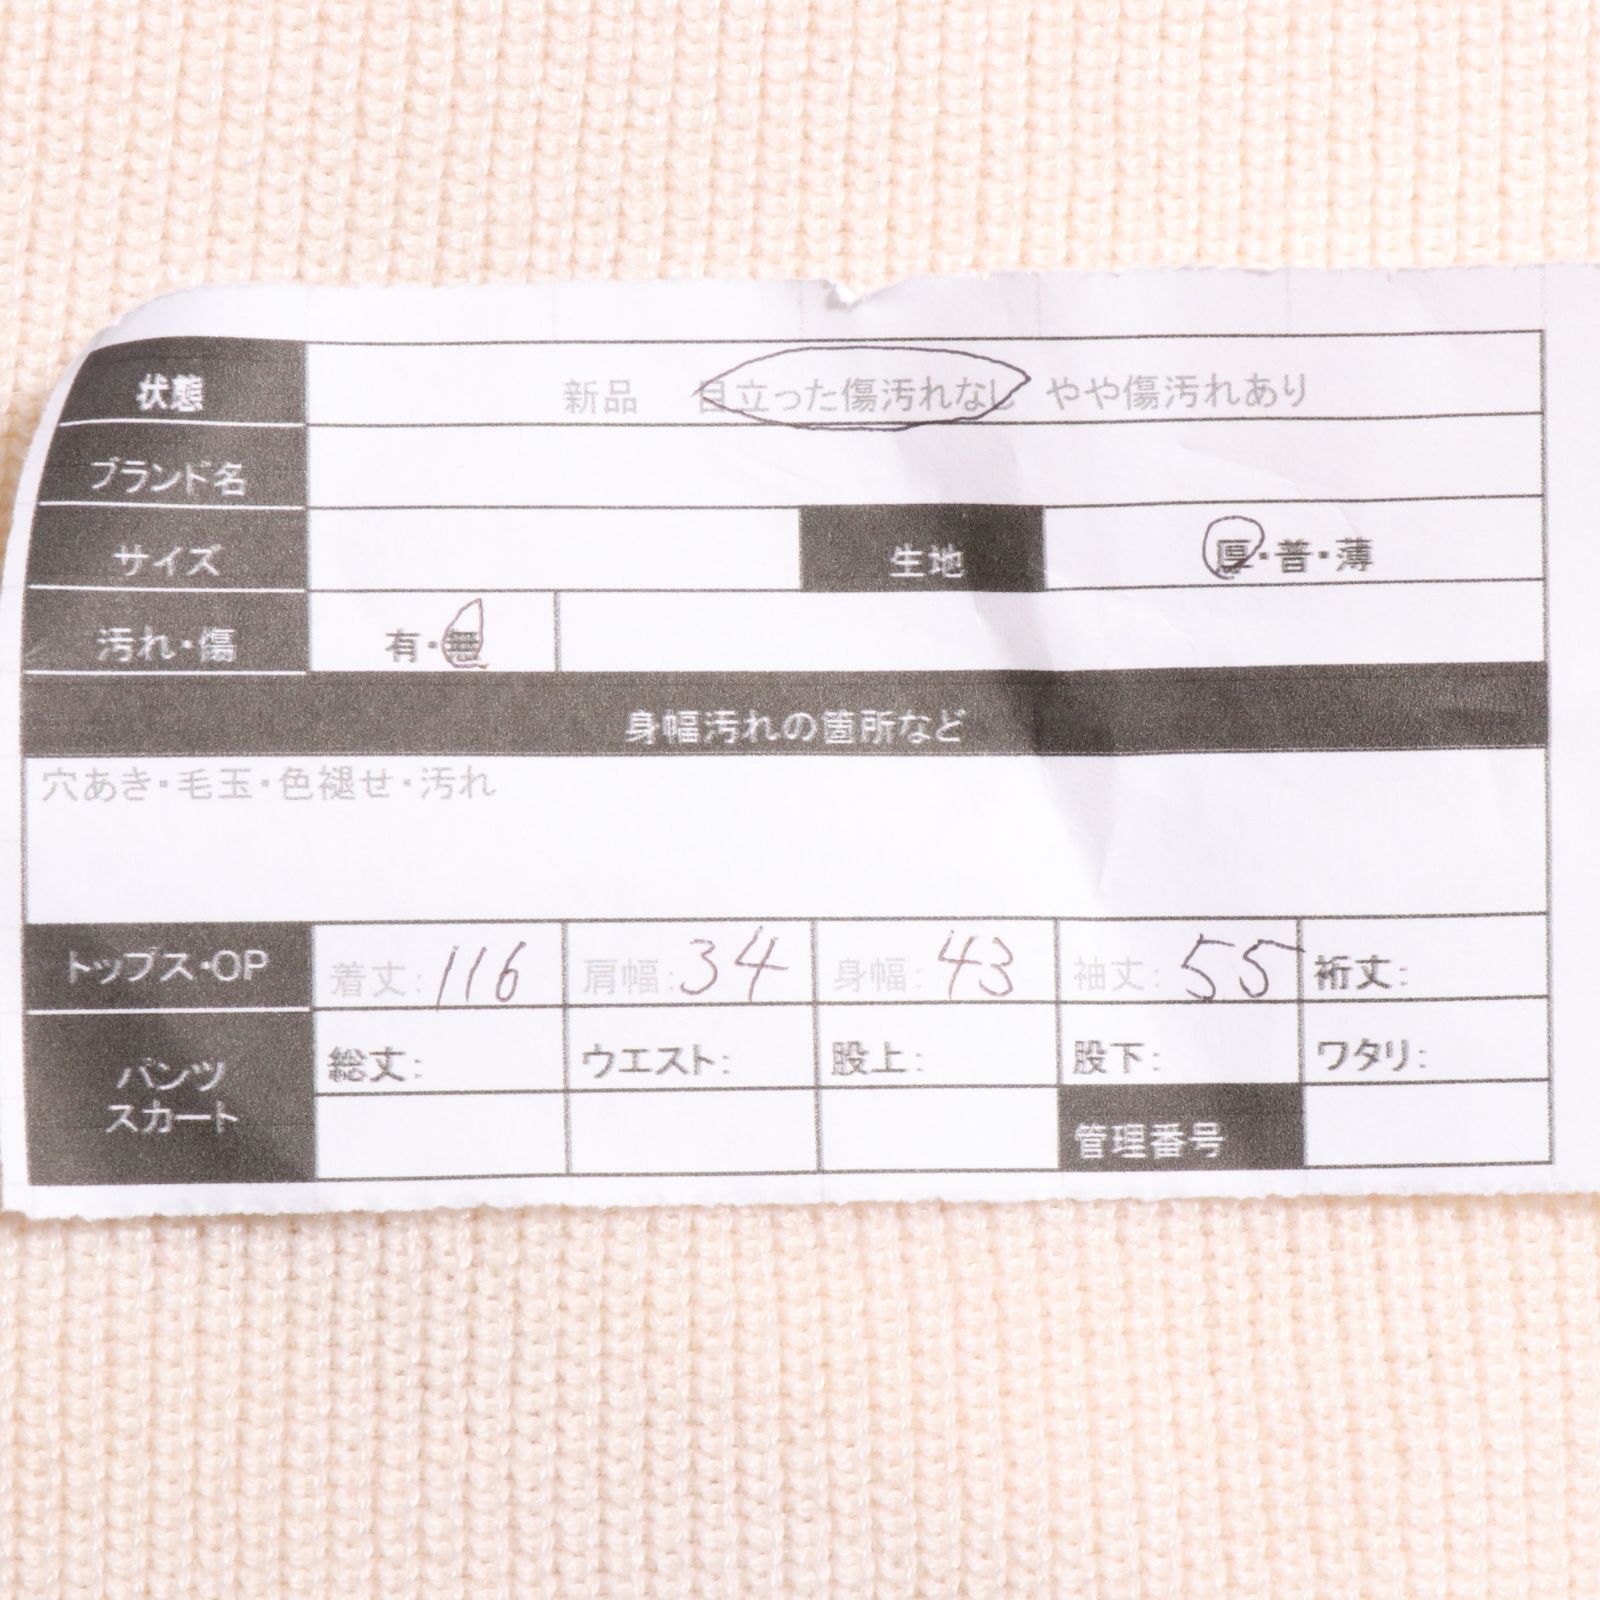 状態 新品 目立った傷汚れなし やや傷汚れあり
ブランド名
サイズ 生地 厚・普・薄
汚れ・傷 有・無
身幅汚れの箇所など
穴あき・毛玉・色褪せ・汚れ
トップス・OP 着丈:116 肩幅:34 身幅:43 袖丈:55 裄丈:
パンツ スカート 総丈: ウエスト: 股上: 股下: ワタリ:
管理番号